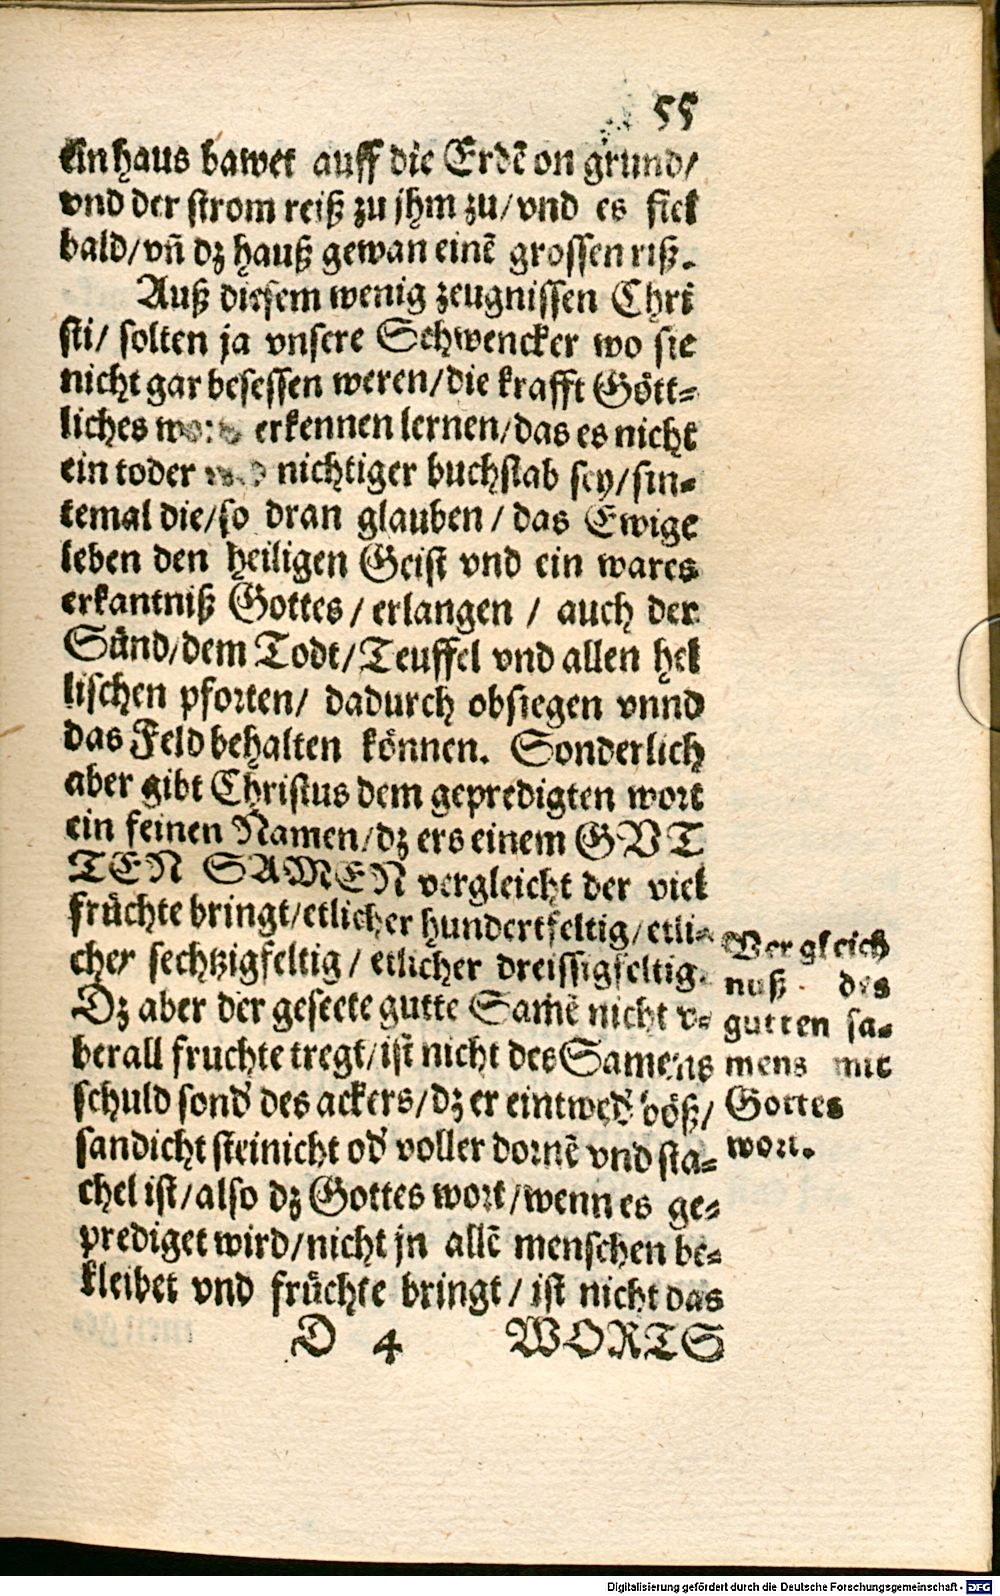 55
ein haus bawet auff die Erdẽ on grund/
vnd der strom reiß zu jhm zu/vnd es fiel
bald/vñ dz hauß gewan einẽ grossen riß.
Auß diesem wenig zeugnissen Chri
sti/ solten ja vnsere Schwencker wo sie
nicht gar besessen weren/die krafft Gött-
liches erkennen lernen/das es nicht
ein toder nichtiger buchstab sey/sin-
temal die/so dran glauben/das Ewige
leben den heiligen Geist vnd ein wares
erkantniß Gottes/erlangen / auch der
Sünd/dem Todt/Teuffel vnd allen hel
lischen pforten/ dadurch obsiegen vnnd
das Feld behalten können. Sonderlich
aber gibt Christus dem gepredigten wort
ein feinen Namen/dz ers einem GVT
TEN SAMEN vergleicht der viel
früchte bringt/etlicher hundertfeltig/etli-
cher sechtzigfeltig/etlicher dreissigfeltig.
Dz aber der geseete gutte Samẽ nicht v-
berall fruchte tregt/ist nicht des Samens
schuld sond̕ des ackers/dz er eintwed̕ böß/
sandicht steinicht od̕ voller dornẽ vnd sta-
chel ist/also dz Gottes wort/wenn es ge-
prediget wird/nicht jn allẽ menschen be-
kleibet vnd früchte bringt/ist nicht das
D 4 WORTS
Vergleich
nuß des
gutten sa-
mens mit
Gottes
wort.
Digitalisierung gefördert durch die Deutsche Forschungsgemeinschaft - DFG